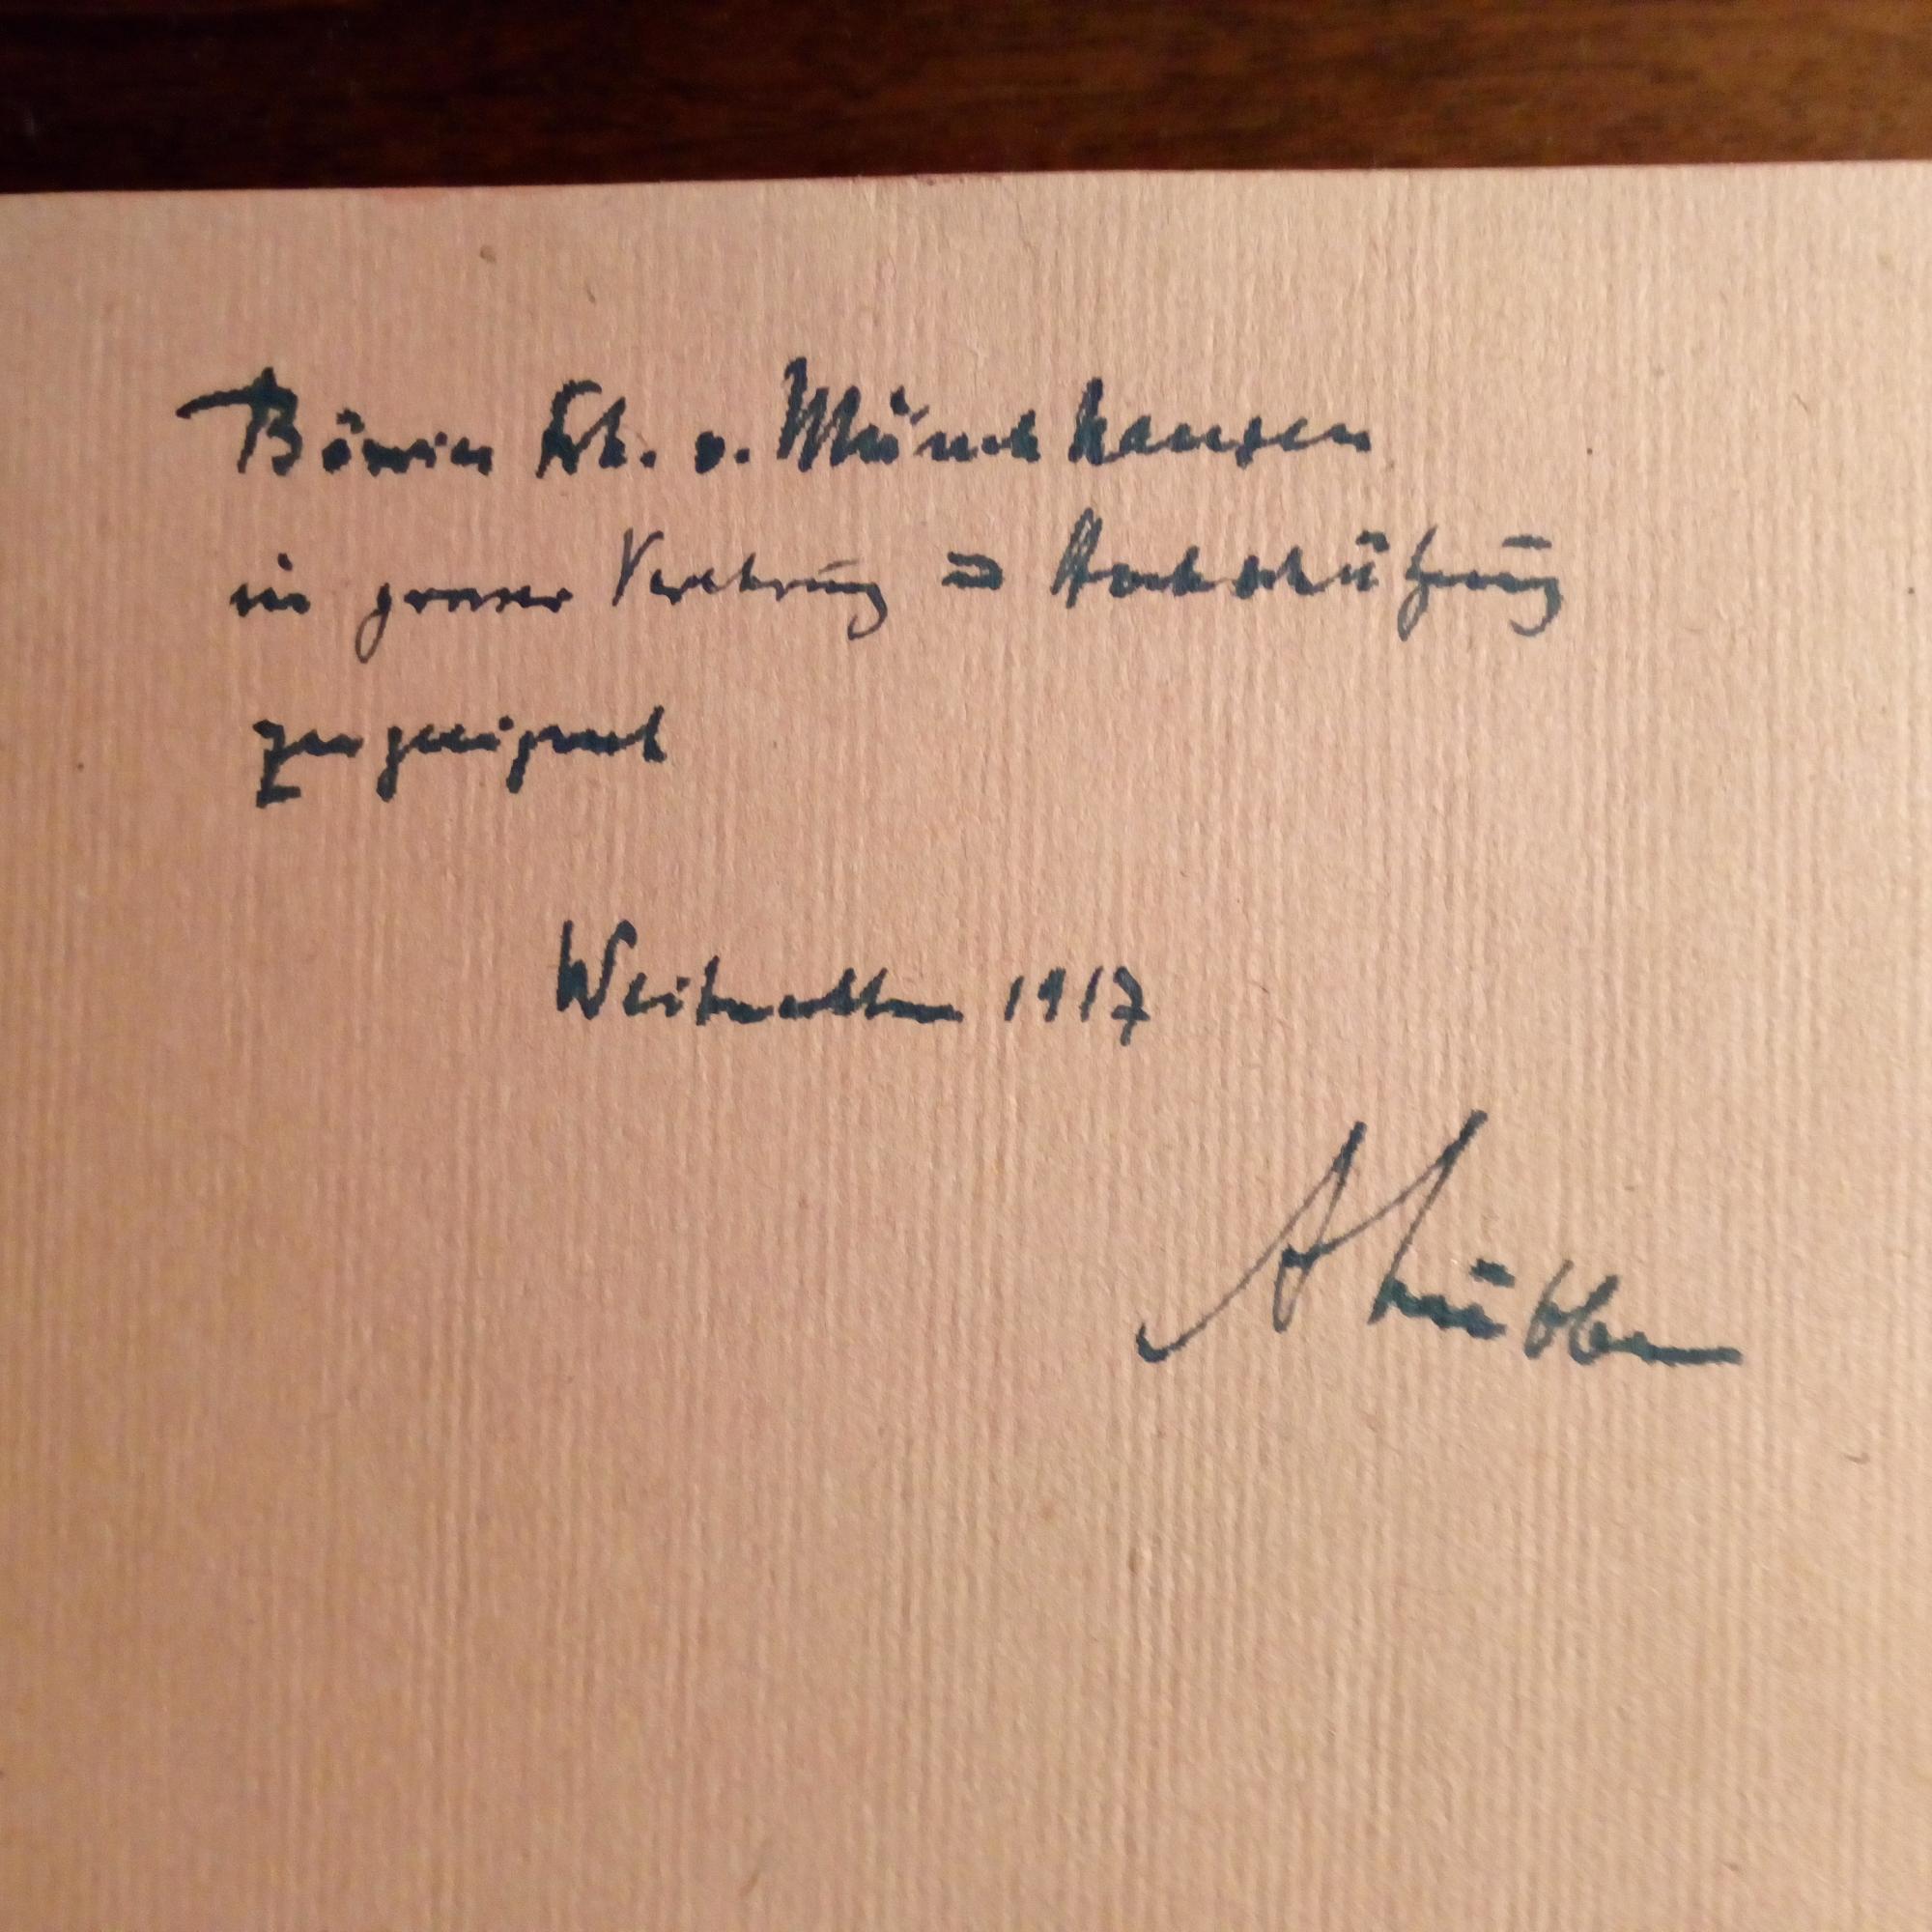 Börries Frh. v. Münchhausen
in grosser Verehrung u Hochschätzung
zugeeignet
Weihnachten 1917